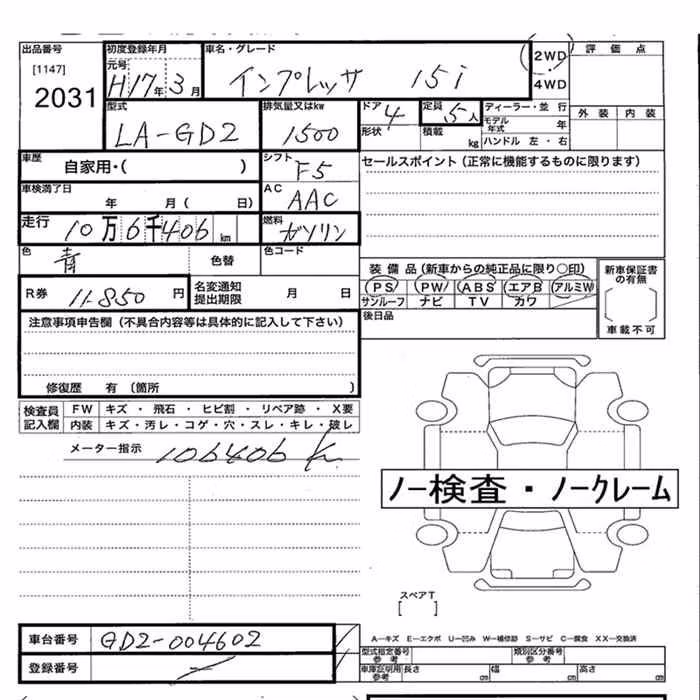 出品番号 初度登録年月 車名・グレード 2WD 評価点
[1147] 元号 H17年3月 インプレッサ 15i 4WD
2031
型式 排気量又はkw ドア 4 定員 5人 ディーラー・並行 外装 内装
LA-GD2 1500 形状 積載 kg モデル年式 年
ハンドル 左・右
車歴 自家用・( ) シフト F5 セールスポイント(正常に機能するものに限ります)
車検満了日 年 月( 日) AC AAC
走行 10万6千406km 燃料 ガソリン
色 青 色替 色コード
装備品(新車からの純正品に限り○印) 新車保証書の有無
R券 11.850円 名変通知提出期限 月 日 PS PW ABS エアB アルミW
サンルーフ ナビ TV カワ
車載不可
注意事項申告欄(不具合内容等は具体的に記入して下さい) 後日品
修復歴 有(箇所 )
検査員記入欄 FW キズ・飛石・ヒビ割・リペア跡・X要
内装 キズ・汚レ・コゲ・穴・スレ・キレ・破レ
メーター指示 106406 K
ノー検査・ノークレーム
スペアT
[ ]
車台番号 GD2-004602 A―キズ E―エクボ U―凹み W―補修跡 S―サビ C―腐食 XX―交換済
型式指定番号 参考 類別区分番号 参考
登録番号 車庫証明用 参考 長さ cm 幅 cm 高さ cm